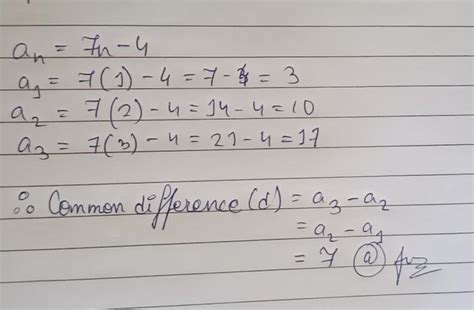 an = 7n - 4
a1 = 7(1) - 4 = 7 - 4 = 3
a2 = 7(2) - 4 = 14 - 4 = 10
a3 = 7(3) - 4 = 21 - 4 = 17
∴ Common difference (d) = a3 - a2
= a2 - a1
= 7 ⓐ